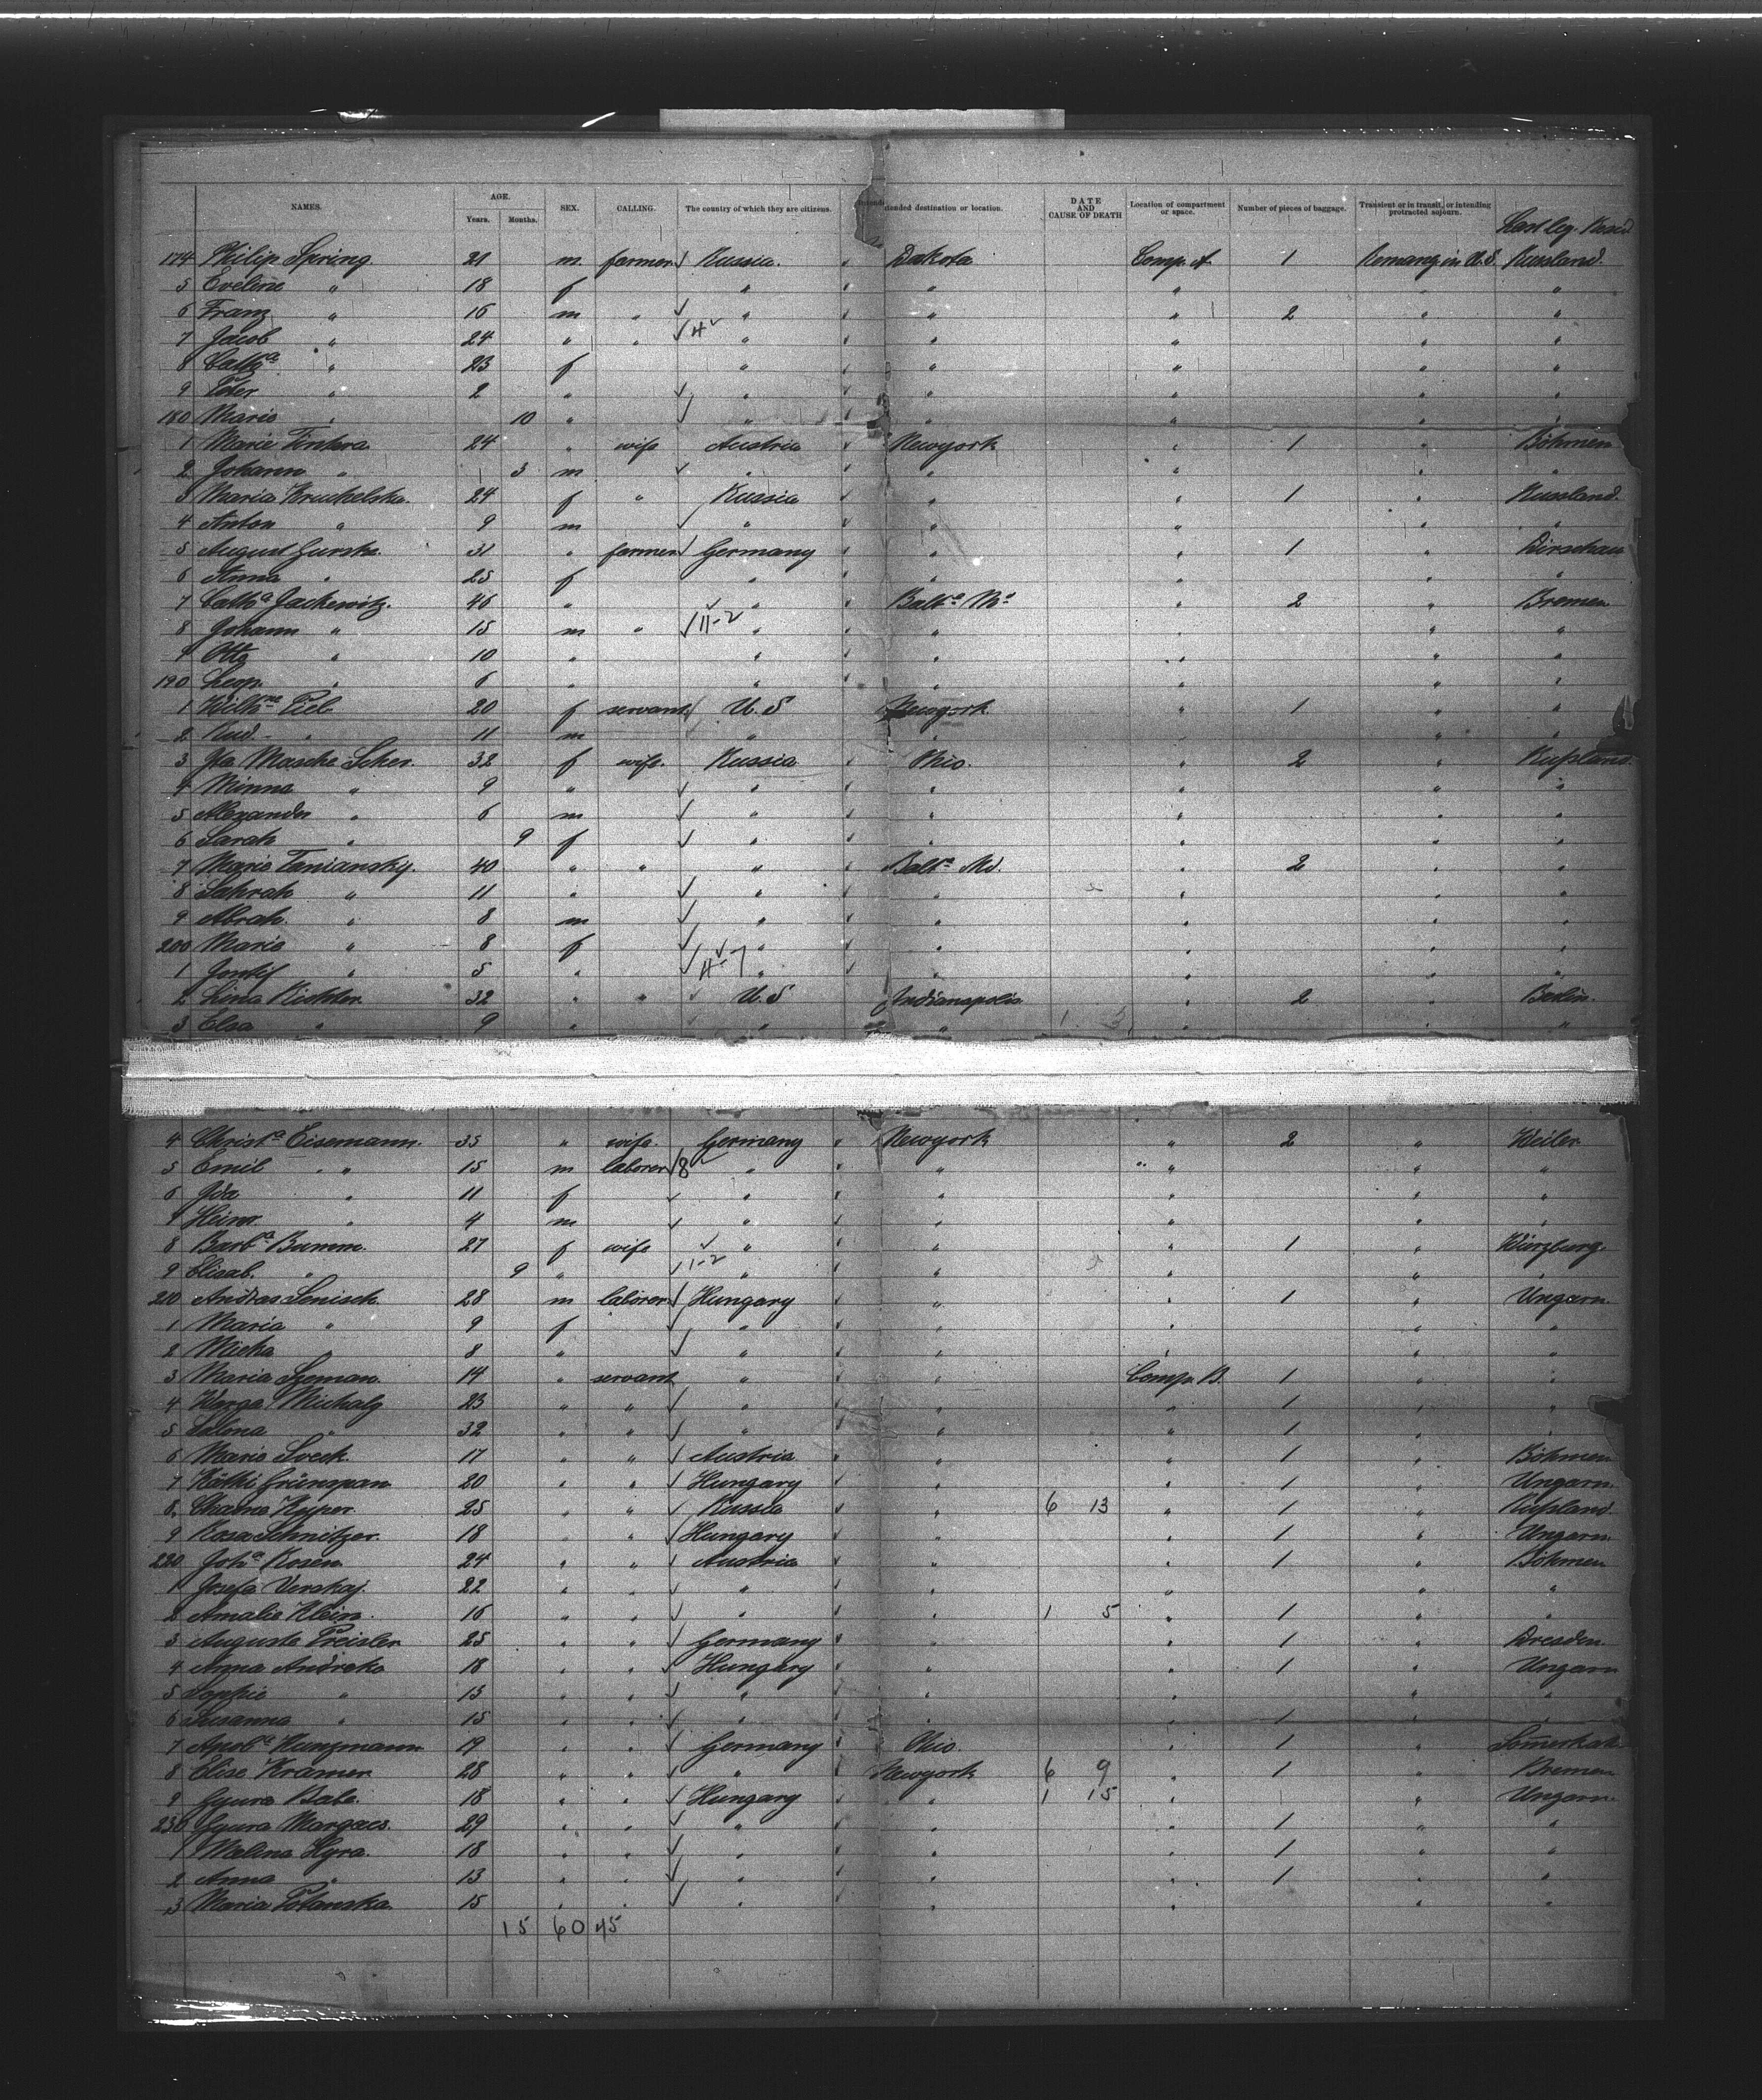 NAMES. AGE. Years. Months. SEX. CALLING. The country of which they are citizens. Intended destination or location. DATE AND CAUSE OF DEATH Location of compartment or space. Number of pieces of baggage. Transient or in transit, or intending protracted sojourn. Last leg. Resid
174 Philip Spring 21 m farmer Russia. Dakota Comp. A. 1 Remang in U.S. Russland.
5 Eveline " 18 f " " " " "
6 Franz " 16 m " " " " 2 " "
7 Jacob " 24 " " 4 " " " " "
8 Cath.a " 23 f " " " " "
9 Peter " 2 " " " " " "
180 Marie " 10 " " " " " "
1 Marie Tintera 24 " wife Austria Newyork " 1 " Böhmen
2 Johann " 3 m " " " " "
3 Maria Kruchelska. 24 f " Russia " " 1 " Russland.
4 Anton " 9 m " " " " "
5 August Gurska. 31 " farmer Germany " " 1 " Dirschau
6 Anna " 25 f " " " " "
7 Cath.a Jackewitz. 46 " " Balt.o Md " 2 " Bremen
8 Johann " 15 m " 11-2 " " " " "
9 Otto " 10 " " " " " "
190 Leop. " 6 " " " " " "
1 Wilh.ne Piel 20 f servant U.S Newyork " 1 " "
2 Rud. " 11 m " " " " "
3 Ita Masche Scher. 32 f wife. Russia Ohio. " 2 " Rußland.
4 Minna " 9 " " " " " "
5 Alexander " 6 m " " " " "
6 Sarah " 9 f " " " " "
7 Marie Taniansky. 40 " " " Balt.o Md. " 2 " "
8 Sahrah " 11 " " " " " "
9 Abrah. " 8 m " " " " "
200 Marie " 8 f " " " " "
1 " 5 " 11-7 " " " " "
2 Lina Richter 32 " " U.S Indianapolis " 2 " Berlin.
3 Elsa " 9 " " " " " "
4 Christ.a Eisemann. 35 " wife. Germany Newyork " 2 " Weiler
5 Emil " 15 m laborer 8 " " " " "
6 Ida " 11 f " " " " "
7 Heinr. " 4 m " " " " "
8 Barb.a Bumm. 27 f wife " " " 1 " Würzburg.
9 Elisab. " 9 " 1-2 " " " " "
210 Andras Senisch. 28 m laborer Hungary " " 1 " Ungarn.
1 Maria " 9 f " " " " "
2 Micha " 8 " " " " " "
3 Maria Szeman. 14 " servant " " Comp. B. 1 " "
4 Warga Michaly 23 " " " " " 1 " "
5 " 32 " " " " " 1 " "
6 Marie Svech. 17 " " Austria " " 1 " Böhmen
7 Käthi Grünspan 20 " " Hungary " " 1 " Ungarn.
8. Chaine Kyper. 25 " " Russia " 6 13 " 1 " Rußland.
9 Rosa Schnitzer. 18 " " Hungary " " 1 " Ungarn.
220 Joh.a Rosen 24 " " Austria " " 1 " Böhmen
1 Josefa Verskaj. 22 " " " " " " "
2 Amalie Klein. 16 " " " " 1 5 " 1 " "
3 Auguste Preisler 25 " " Germany " " 1 " Dresden
4 Anna Andreko 18 " " Hungary " " 1 " Ungarn
5 Sophie " 13 " " " " " " "
6 Susanna " 15 " " " " " 1 " "
7 Kunzmann 19 " " Germany Ohio. " 1 "
8 Elise Kramer 28 " " " Newyork 6 9 " 1 " Bremen
9 Gyura Bale. 18 " " Hungary " 1 15 " " Ungarn.
230 Gyura Margacs. 29 " " " " " 1 " "
1 Melina Hyra. 18 " " " " " 1 " "
2 Anna " 13 " " " " " 1 " "
3 Maria Potanska. 15 " " " " " " "
15 60 45